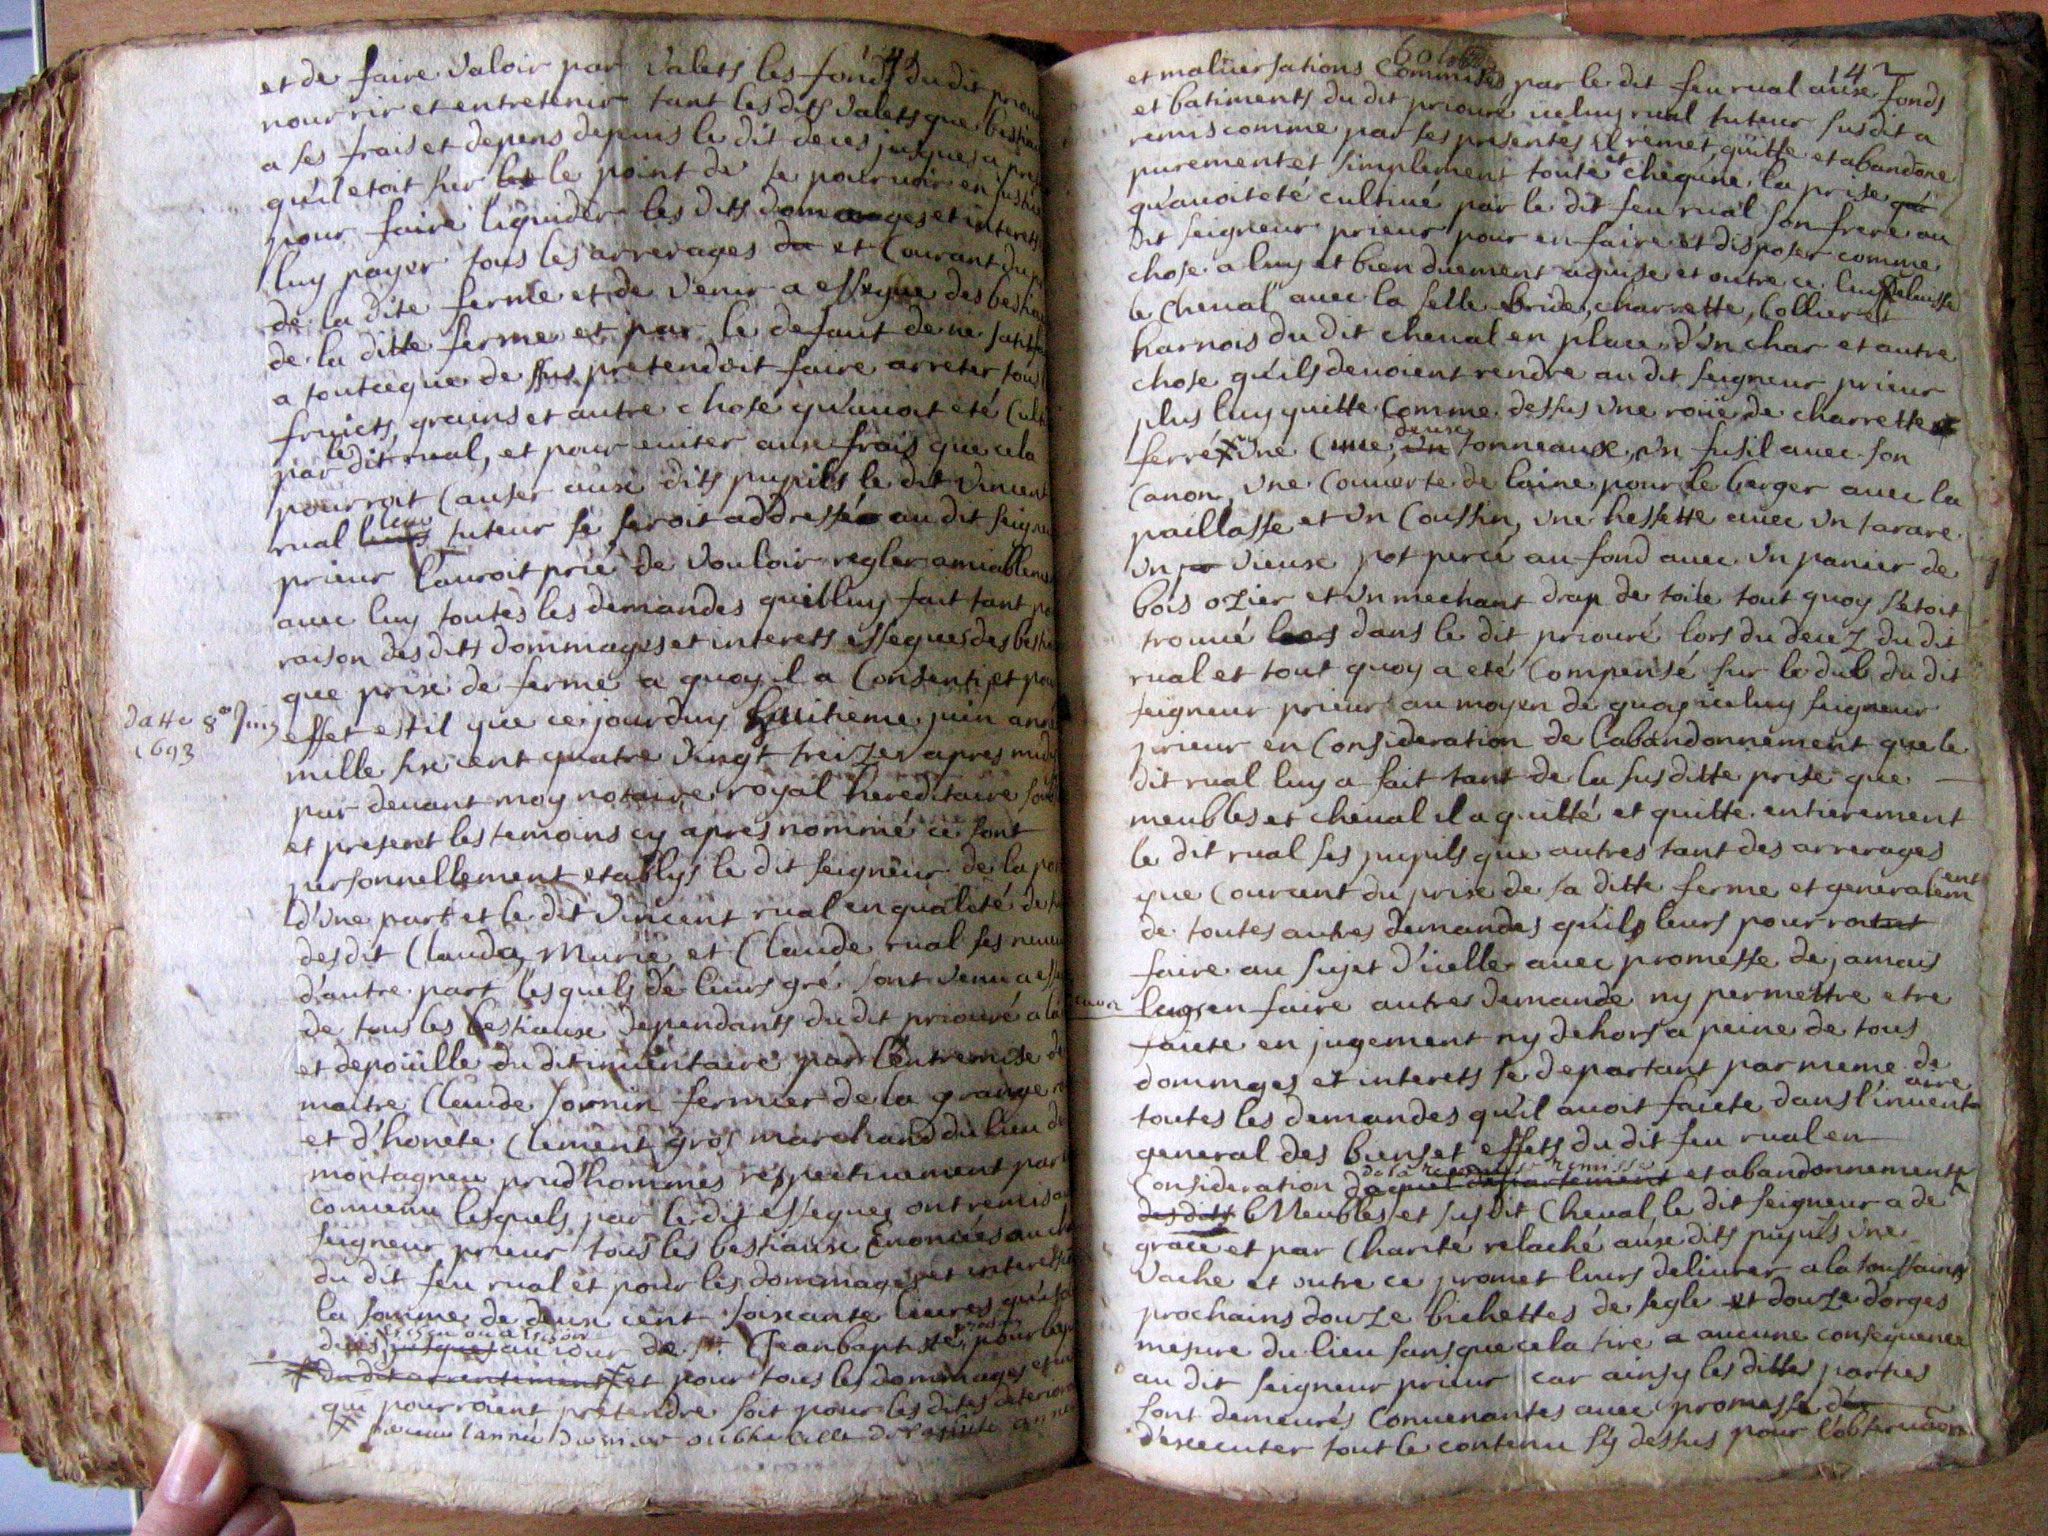 et de faire valoir par valets les fonds du dit prieu
nourrir et entretenir tant les dits valets que bestiau
a ses frais et depens depuis le dit deces jusques a
qu'il etoit sur le point de se pourvoir en justi
pour faire liquider les dits domages et interets
luy payer tous les arrerages et courant du
de la dite ferme et de venir a essegue des besti
de la ditte ferme et par le defaut de ne satisf
a tout ceque de ssus pretendoit faire arreter tous
fruicts, grains et autre chose qu'avoit eté cult
par le dit rual, et pour eviter aux frais que cela
pourroit causer aux dits pupils le dit vincent
rual leur tuteur se seroit addressé au dit seigne
prieur l'auroit prié de vouloir regler amiableme
avec luy toutes les demandes quil luy fait tant po
raison des dits dommages et interets essegues des bestia
que prix de ferme a quoy il a consenti, et pou
datte 8e Juin
1693
effet est il que ce jourduy huitieme juin an
mille six cent quatre vingt treize apres midy
par devant moy notaire royal hereditaire sou
et present les temoins cy apres nommé ce sont
personnellement etablys le dit seigneur de la po
d'une part et le dit vincent rual en qualité de tu
des dit Clauda, Marie et Claude rual ses neveu
d'autre part lesquels de leurs gré sont venu a esse
de tous les bestiaux dependants du dit prieuré a la
et depoüille du dit inventaire par l'entremise de
maitre Claude Jornin fermier de la grange
et d'honete Clement gros marchand du lieu de
montagneu prud'hommes respectivement par
convenu lesquels par le dit essegues ont remis au
seigneur prieur tous les bestiaux enoncés au
du dit feu rual et pour les dommages et interests
la somme de deux cent soixante livres
jusques au jour de st Jean baptiste
du dit arrentement et pour tous les dommages et in
qui pourroient pretendre soit pour les dites deterior
142
et malversations commises par le dit feu rual aux fonds
et batiments du dit prieuré iceluy rual tuteur susdit a
remis comme par ses presentes il remet, quitte et abandone
purement et simplement toute et chequne la prise
qu'avoit eté cultivé par le dit feu rual son frere au
dit seigneur prieur pour en faire et disposer comme
chose a luy et bien duement aquise et outre ce luy relausse
le cheval avec la selle bride, charrette, collier et
harnois du dit cheval en place d'un char et autre
chose qu'ils devoient rendre au dit seigneur prieur
plus luy quitte comme dessus une roüe de charrette
ferré une Cuve, deux tonneaux, un fusil avec son
canon, une couverte de laine pour le berger avec la
paillasse et un coussin, une hessette avec un tarare
un vieux pot percé au fond avec un panier de
bois ozier et un mechant drap de toile tout quoy s'etoit
trouvé dans le dit prieuré lors du decez du dit
rual et tout quoy a eté compensé sur le dub du dit
seigneur prieur au moyen de quoy iceluy seigneur
prieur en consideration de l'abandonnement que le
dit rual luy a fait tant de la susditte prise que
meubles et cheval il a quitté et quitte entierement
le dit rual ses pupils que autres tant des arrerages
que courant du prise de sa ditte ferme et generalement
de toutes autres demandes quils leurs pourroient
faire au sujet d'icelle avec promesse de jamais
leurs en faire autres demande ny permettre etre
faicte en jugement ny dehors a peine de tous
dommges et interets se departant par meme de
toutes les demandes qu'il avoit faite dans l'inventaire
general des biens et effets du dit feu rual en
Consideration de la remisse et abandonnement
des dits Meubles et susdit cheval, le dit seigneur a de
grace et par charité relaché aux dits pupils une
vache et outre ce promet leurs delivrer a la toussaint
prochains douze bichettes de segle et douze d'orges
mesure du lieu sans que cela tire a aucune consequence
au dit seigneur prieur car ainsy les dittes parties
sont demeurés convenantes avec promesse
d'executer tout le contenu sy dessus pour l'observation